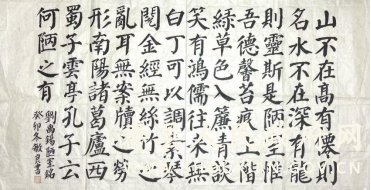 山不在高有僊則
名水不在深有龍
則靈斯是陋室惟
吾德馨苔痕上階
綠草色入簾青談
笑有鴻儒往來無
白丁可以調素琴
閱金經無絲竹之
亂耳無案牘之勞
形南陽諸葛廬西
蜀子雲亭孔子云
何陋之有
劉禹錫陋室銘
癸卯冬敏君書